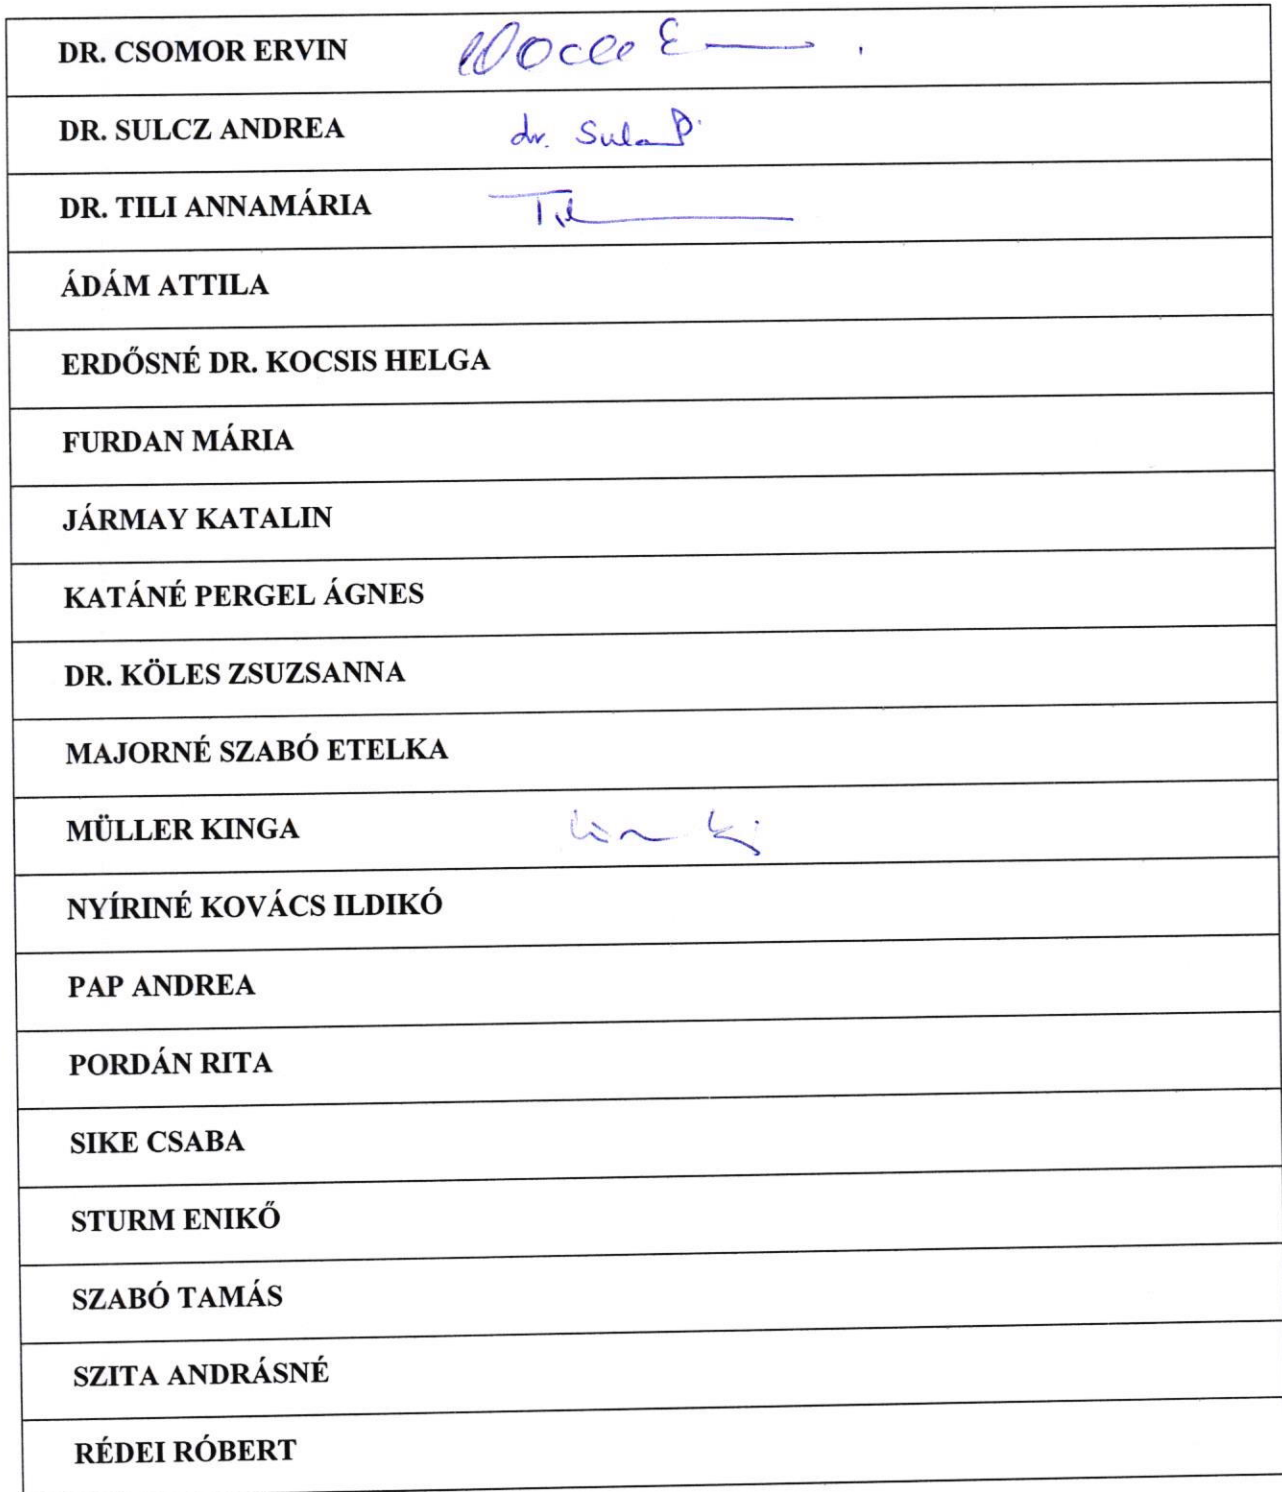 DR. CSOMOR ERVIN
DR. SULCZ ANDREA dr.
DR. TILI ANNAMÁRIA
ÁDÁM ATTILA
ERDŐSNÉ DR. KOCSIS HELGA
FURDAN MÁRIA
JÁRMAY KATALIN
KATÁNÉ PERGEL ÁGNES
DR. KÖLES ZSUZSANNA
MAJORNÉ SZABÓ ETELKA
MÜLLER KINGA
NYÍRINÉ KOVÁCS ILDIKÓ
PAP ANDREA
PORDÁN RITA
SIKE CSABA
STURM ENIKŐ
SZABÓ TAMÁS
SZITA ANDRÁSNÉ
RÉDEI RÓBERT